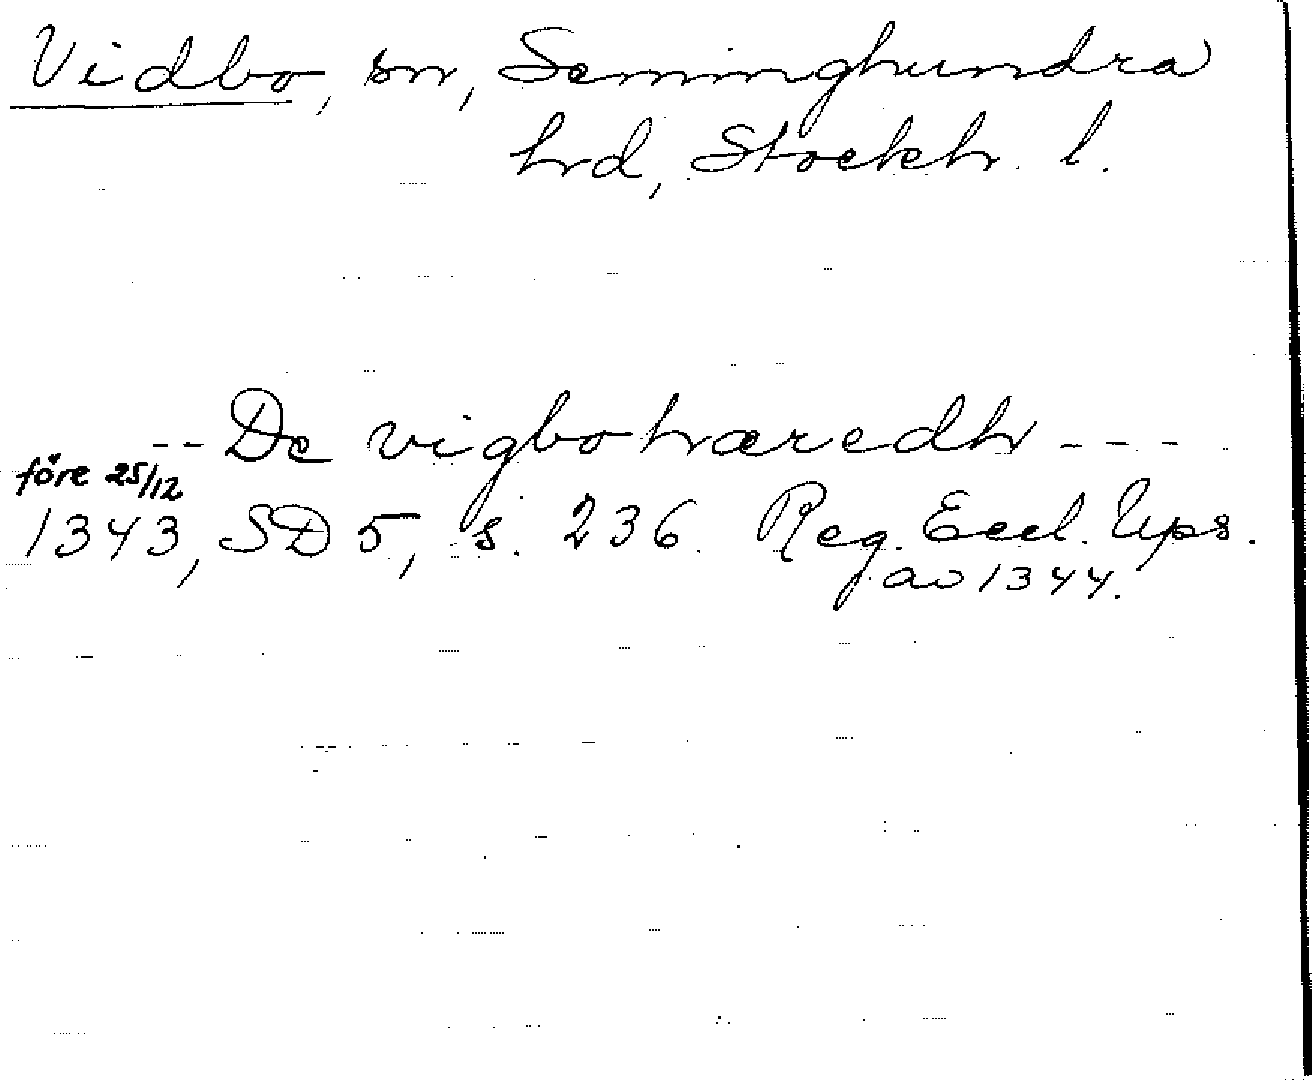 Vidbo, sn, Seminghundra
hrd, Stockh. l.
-- De vigbohæredh ----
före 25/12
1343, SD 5, s. 236. Reg. Eccl. Ups.
av 1344.